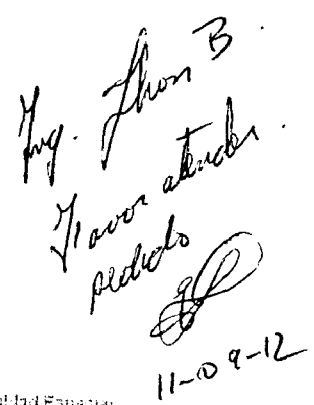 Ing. Jhon B.
Favor atender.
pedido
11-09-12